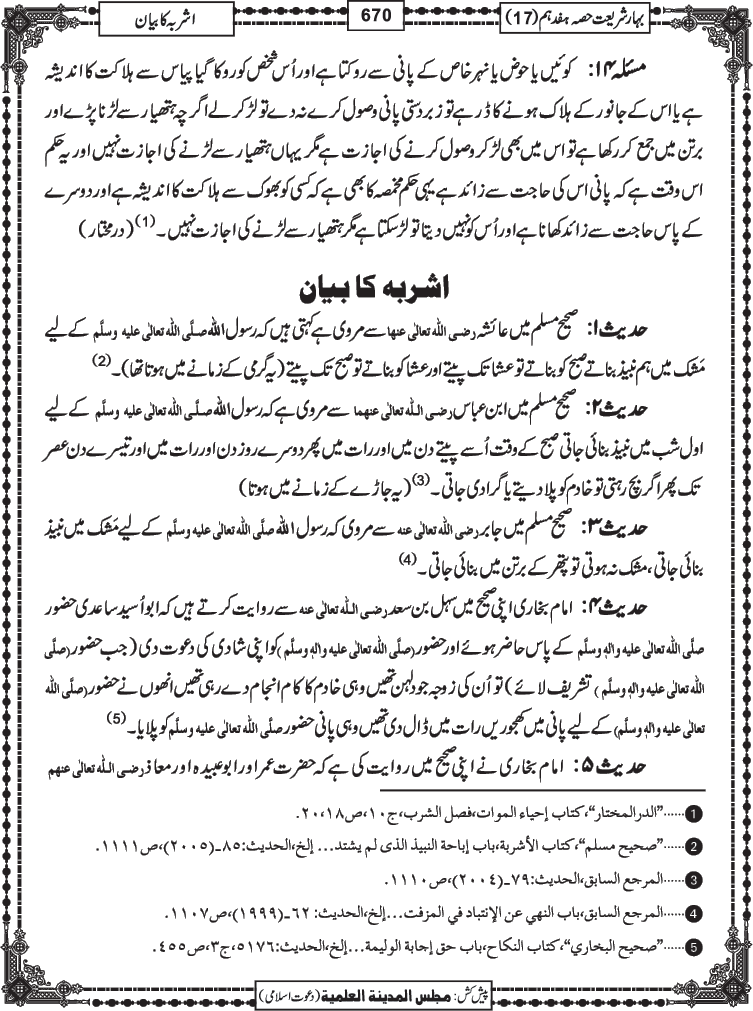 بہارِ شریعت حصہ ہفدہم (17)
670
اشربہ کا بیان
مسئلہ ۱۴: کوئیں یا حوض یا نہر خاص کے پانی سے روکتا ہے اور اُس شخص کو روکا گیا پیاس سے ہلاکت کا اندیشہ
ہے یا اس کے جانور کے ہلاک ہونے کا ڈر ہے تو زبردستی پانی وصول کرے نہ دے تو لڑ کر لے اگرچہ ہتھیار سے لڑنا پڑے اور
برتن میں جمع کر رکھا ہے تو اس میں بھی لڑ کر وصول کرنے کی اجازت ہے مگر یہاں ہتھیار سے لڑنے کی اجازت نہیں اور یہ حکم
اس وقت ہے کہ پانی اس کی حاجت سے زائد ہے یہی حکم مخمصہ کا بھی ہے کہ کسی کو بھوک سے ہلاکت کا اندیشہ ہے اور دوسرے
کے پاس حاجت سے زائد کھانا ہے اور اُس کو نہیں دیتا تو لڑ سکتا ہے مگر ہتھیار سے لڑنے کی اجازت نہیں۔(1) (درمختار)
اشربہ کا بیان
حدیث ۱: صحیح مسلم میں عائشہ رضی اللہ تعالٰی عنہا سے مروی ہے کہتی ہیں کہ رسول اﷲ صلَّی اللہ تعالٰی علیہ وسلَّم کے لیے
مَشک میں ہم نبیذ بناتے صبح کو بناتے تو عشا تک پیتے اور عشا کو بناتے تو صبح تک پیتے (یہ گرمی کے زمانے میں ہوتا تھا)۔(2)
حدیث ۲: صحیح مسلم میں ابن عباس رضی اللہ تعالٰی عنہما سے مروی ہے کہ رسول اﷲ صلَّی اللہ تعالٰی علیہ وسلَّم کے لیے
اول شب میں نبیذ بنائی جاتی صبح کے وقت اُسے پیتے دن میں اور رات میں پھر دوسرے روز دن اور رات میں اور تیسرے دن عصر
تک پھر اگر بچ رہتی تو خادم کو پلا دیتے یا گرا دی جاتی۔(3) (یہ جاڑے کے زمانے میں ہوتا)
حدیث ۳: صحیح مسلم میں جابر رضی اللہ تعالٰی عنہ سے مروی کہ رسول اﷲ صلَّی اللہ تعالٰی علیہ وسلَّم کے لیے مَشک میں نبیذ
بنائی جاتی، مشک نہ ہوتی تو پتھر کے برتن میں بنائی جاتی۔(4)
حدیث ۴: امام بخاری اپنی صحیح میں سہل بن سعد رضی اللہ تعالٰی عنہ سے روایت کرتے ہیں کہ ابو اُسید ساعدی حضور
صلَّی اللہ تعالٰی علیہ واٰلہٖ وسلَّم کے پاس حاضر ہوئے اور حضور (صلَّی اللہ تعالٰی علیہ واٰلہٖ وسلَّم) کو اپنی شادی کی دعوت دی (جب حضور (صلَّی
اللہ تعالٰی علیہ واٰلہٖ وسلَّم) تشریف لائے) تو اُن کی زوجہ جو دلہن تھیں وہی خادم کا کام انجام دے رہی تھیں انھوں نے حضور (صلَّی اللہ
تعالٰی علیہ واٰلہٖ وسلَّم) کے لیے پانی میں کھجوریں رات میں ڈال دی تھیں وہی پانی حضور صلَّی اللہ تعالٰی علیہ وسلَّم کو پلایا۔(5)
حدیث ۵: امام بخاری نے اپنی صحیح میں روایت کی ہے کہ حضرت عمر اور ابو عبیدہ اور معاذ رضی اللہ تعالٰی عنہم
1......"الدرالمختار"،کتاب إحیاء الموات،فصل الشرب،ج۱۰،ص۱۸،۲۰.
2......"صحیح مسلم"،کتاب الأشربۃ،باب إباحۃ النبیذ الذی لم یشتد...إلخ،الحدیث:۸۵-(۲۰۰۵)،ص۱۱۱۱.
3......المرجع السابق،الحدیث:۷۹-(۲۰۰۴)،ص۱۱۱۰.
4......المرجع السابق،باب النھي عن الإنتباد في المزفت...إلخ،الحدیث:۶۲-(۱۹۹۹)،ص۱۱۰۷.
5......"صحیح البخاري"،کتاب النکاح،باب حق إجابۃ الولیمۃ...إلخ،الحدیث:۵۱۷۶،ج۳،ص۴۵۵.
پیش کش: مجلس المدینۃ العلمیۃ (دعوت اسلامی)